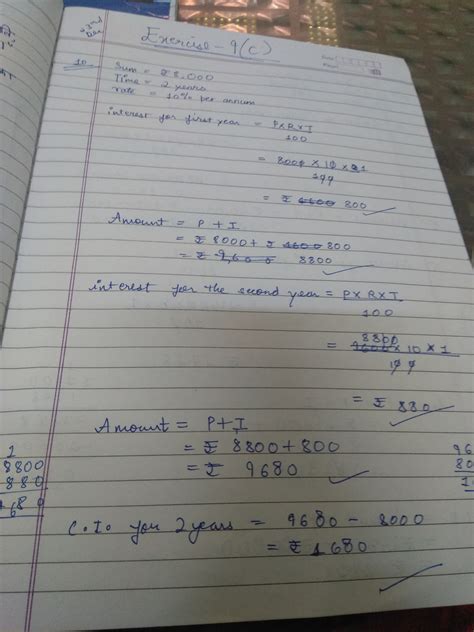 2nd
Exercise - 9(C)
10. Sum = ₹ 8,000
Time = 2 years
rate = 10% per annum
interest for first year = P×R×T
100
= 8000 × 10 × 1
100
= ₹ 1600 800
Amount = P + I
= ₹ 8000 + ₹ 1600 800
= ₹ 9,600 8800
interest for the second year = P×R×T
100
8800
= 9600 × 10 × 1
100
= ₹ 880
Amount = P+I
= ₹ 8800 + 800
= ₹ 9680
C.I. for 2 years = 9680 - 8000
= ₹ 1680
1
8800
880